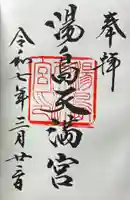 奉拝
湯島天満宮
令和七年三月廿